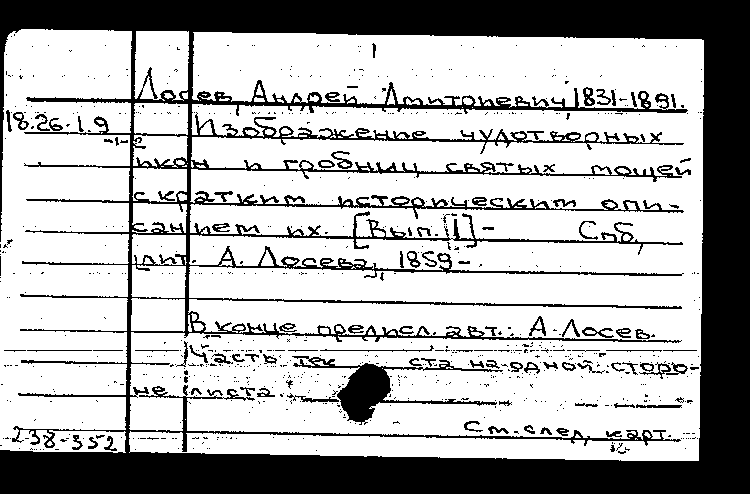 1
Лосев, Андрей Дмитриевич, 1831-1891.
18.26.1.9 Изображение чудотворных
-1-2
икон и гробниц святых мощей
с кратким историческим опи-
санием их. [Вып. [I]- Спб.,
лит. А. Лосева, 1859-.
В конце предисл. авт.: А. Лосев.
Часть тек ста на одной сторо-
не листа.
См. след. карт.
238-352